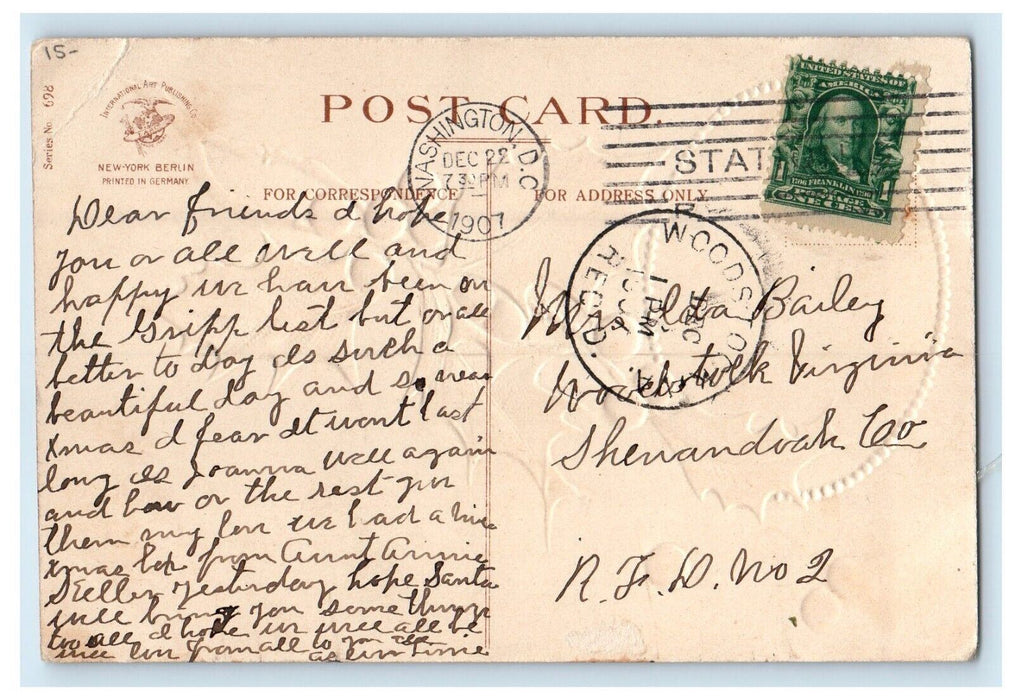 15-
Series No. 698
INTERNATIONAL ART PUBLISHING CO.
NEW-YORK BERLIN
PRINTED IN GERMANY
POST CARD.
WASHINGTON, D.C.
DEC 22
7 30 PM
1907
STAT
UNITED STATES OF
AMERICA
FRANKLIN
POSTAGE
ONE CENT
FOR CORRESPONDENCE
FOR ADDRESS ONLY.
WOODSTOCK, VA.
DEC
1 PM
REC'D.
Dear friends I hope
you or all well and
happy we have been on
the Gripp list but or all
better to day is such a
beautiful day and so near
xmas I fear it wont last
long is Joanna well again
and how or the rest giv
them my lov we had a
xmas from Aunt Annie
yesterday hope Santa
will bring you some things
too all I hope we will all be
lov from all to you
Bailey
Woodstock Virginia
Shenandoah Co
R. F. D. No 2